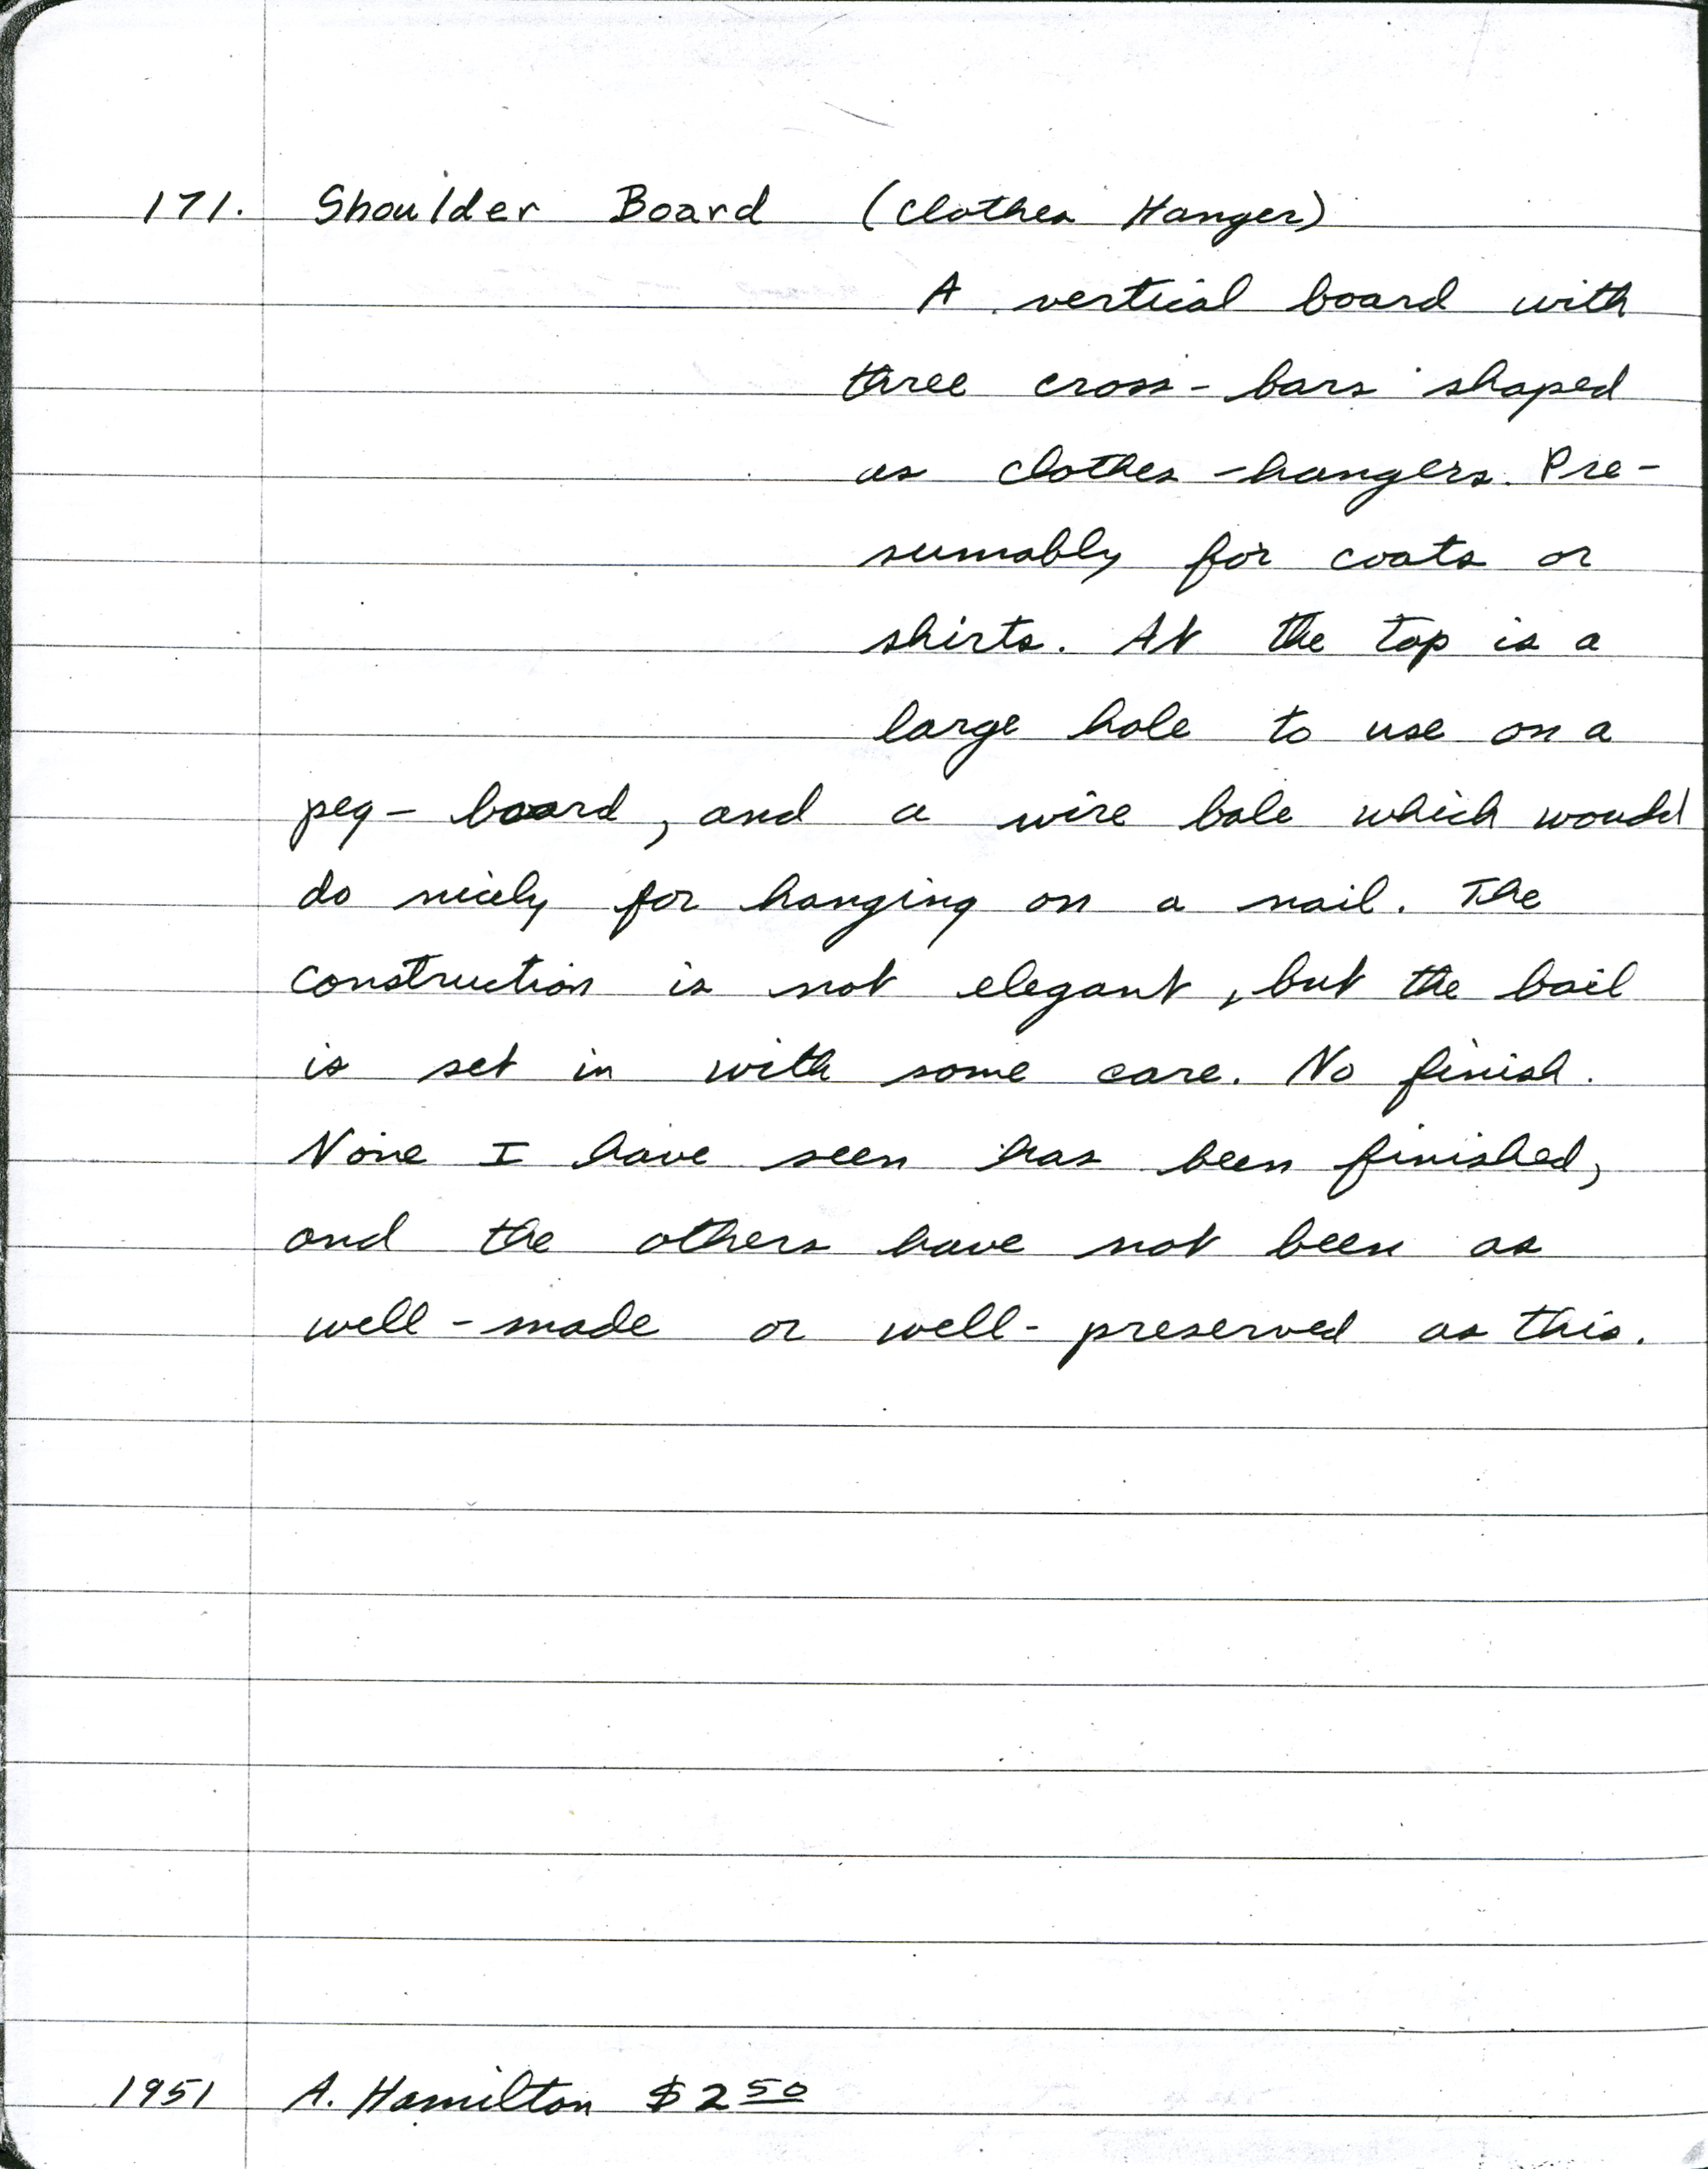 171. Shoulder Board (Clothes Hanger)
A vertical board with
three cross-bars shaped
as clothes-hangers. Pre-
sumably for coats or
shirts. At the top is a
large hole to use on a
peg-board, and a wire bale which would
do nicely for hanging on a nail. The
construction is not elegant, but the bail
is set in with some care. No finish.
None I have seen has been finished,
and the others have not been as
well-made or well-preserved as this.
1951 A. Hamilton $2 50